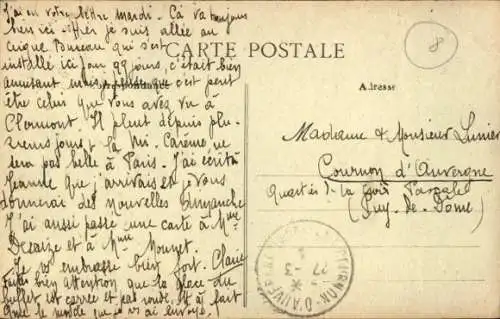 J'ai eu votre lettre mardi. Ca va toujours
bien ici. Hier je suis allée au
cirque Bureau qui s'est
installé ici pour qq jours, c'était bien
amusant mais je pense que c'est peut
être celui que vous avez vu à
Clermont. Il pleut depuis plu-
sieurs jours, la Mi-Carême ne
sera pas belle à Paris. J'ai écrit à
Jeanne que j'arrivais et je vous
donnerai des nouvelles dimanche
J'ai aussi passé une carte à Mme
et à Mme
Je vs embrasse bien fort. Claire
faites bien attention que la glace du
buffet est carrée et pas
que le monde que je vs ai envoyé.
CARTE POSTALE
Correspondance
Adresse
8
Madame & Monsieur
Cournon d'Auvergne
Quartier de la
(Puy-de-Dôme)
COURNON-D'AUVERGNE